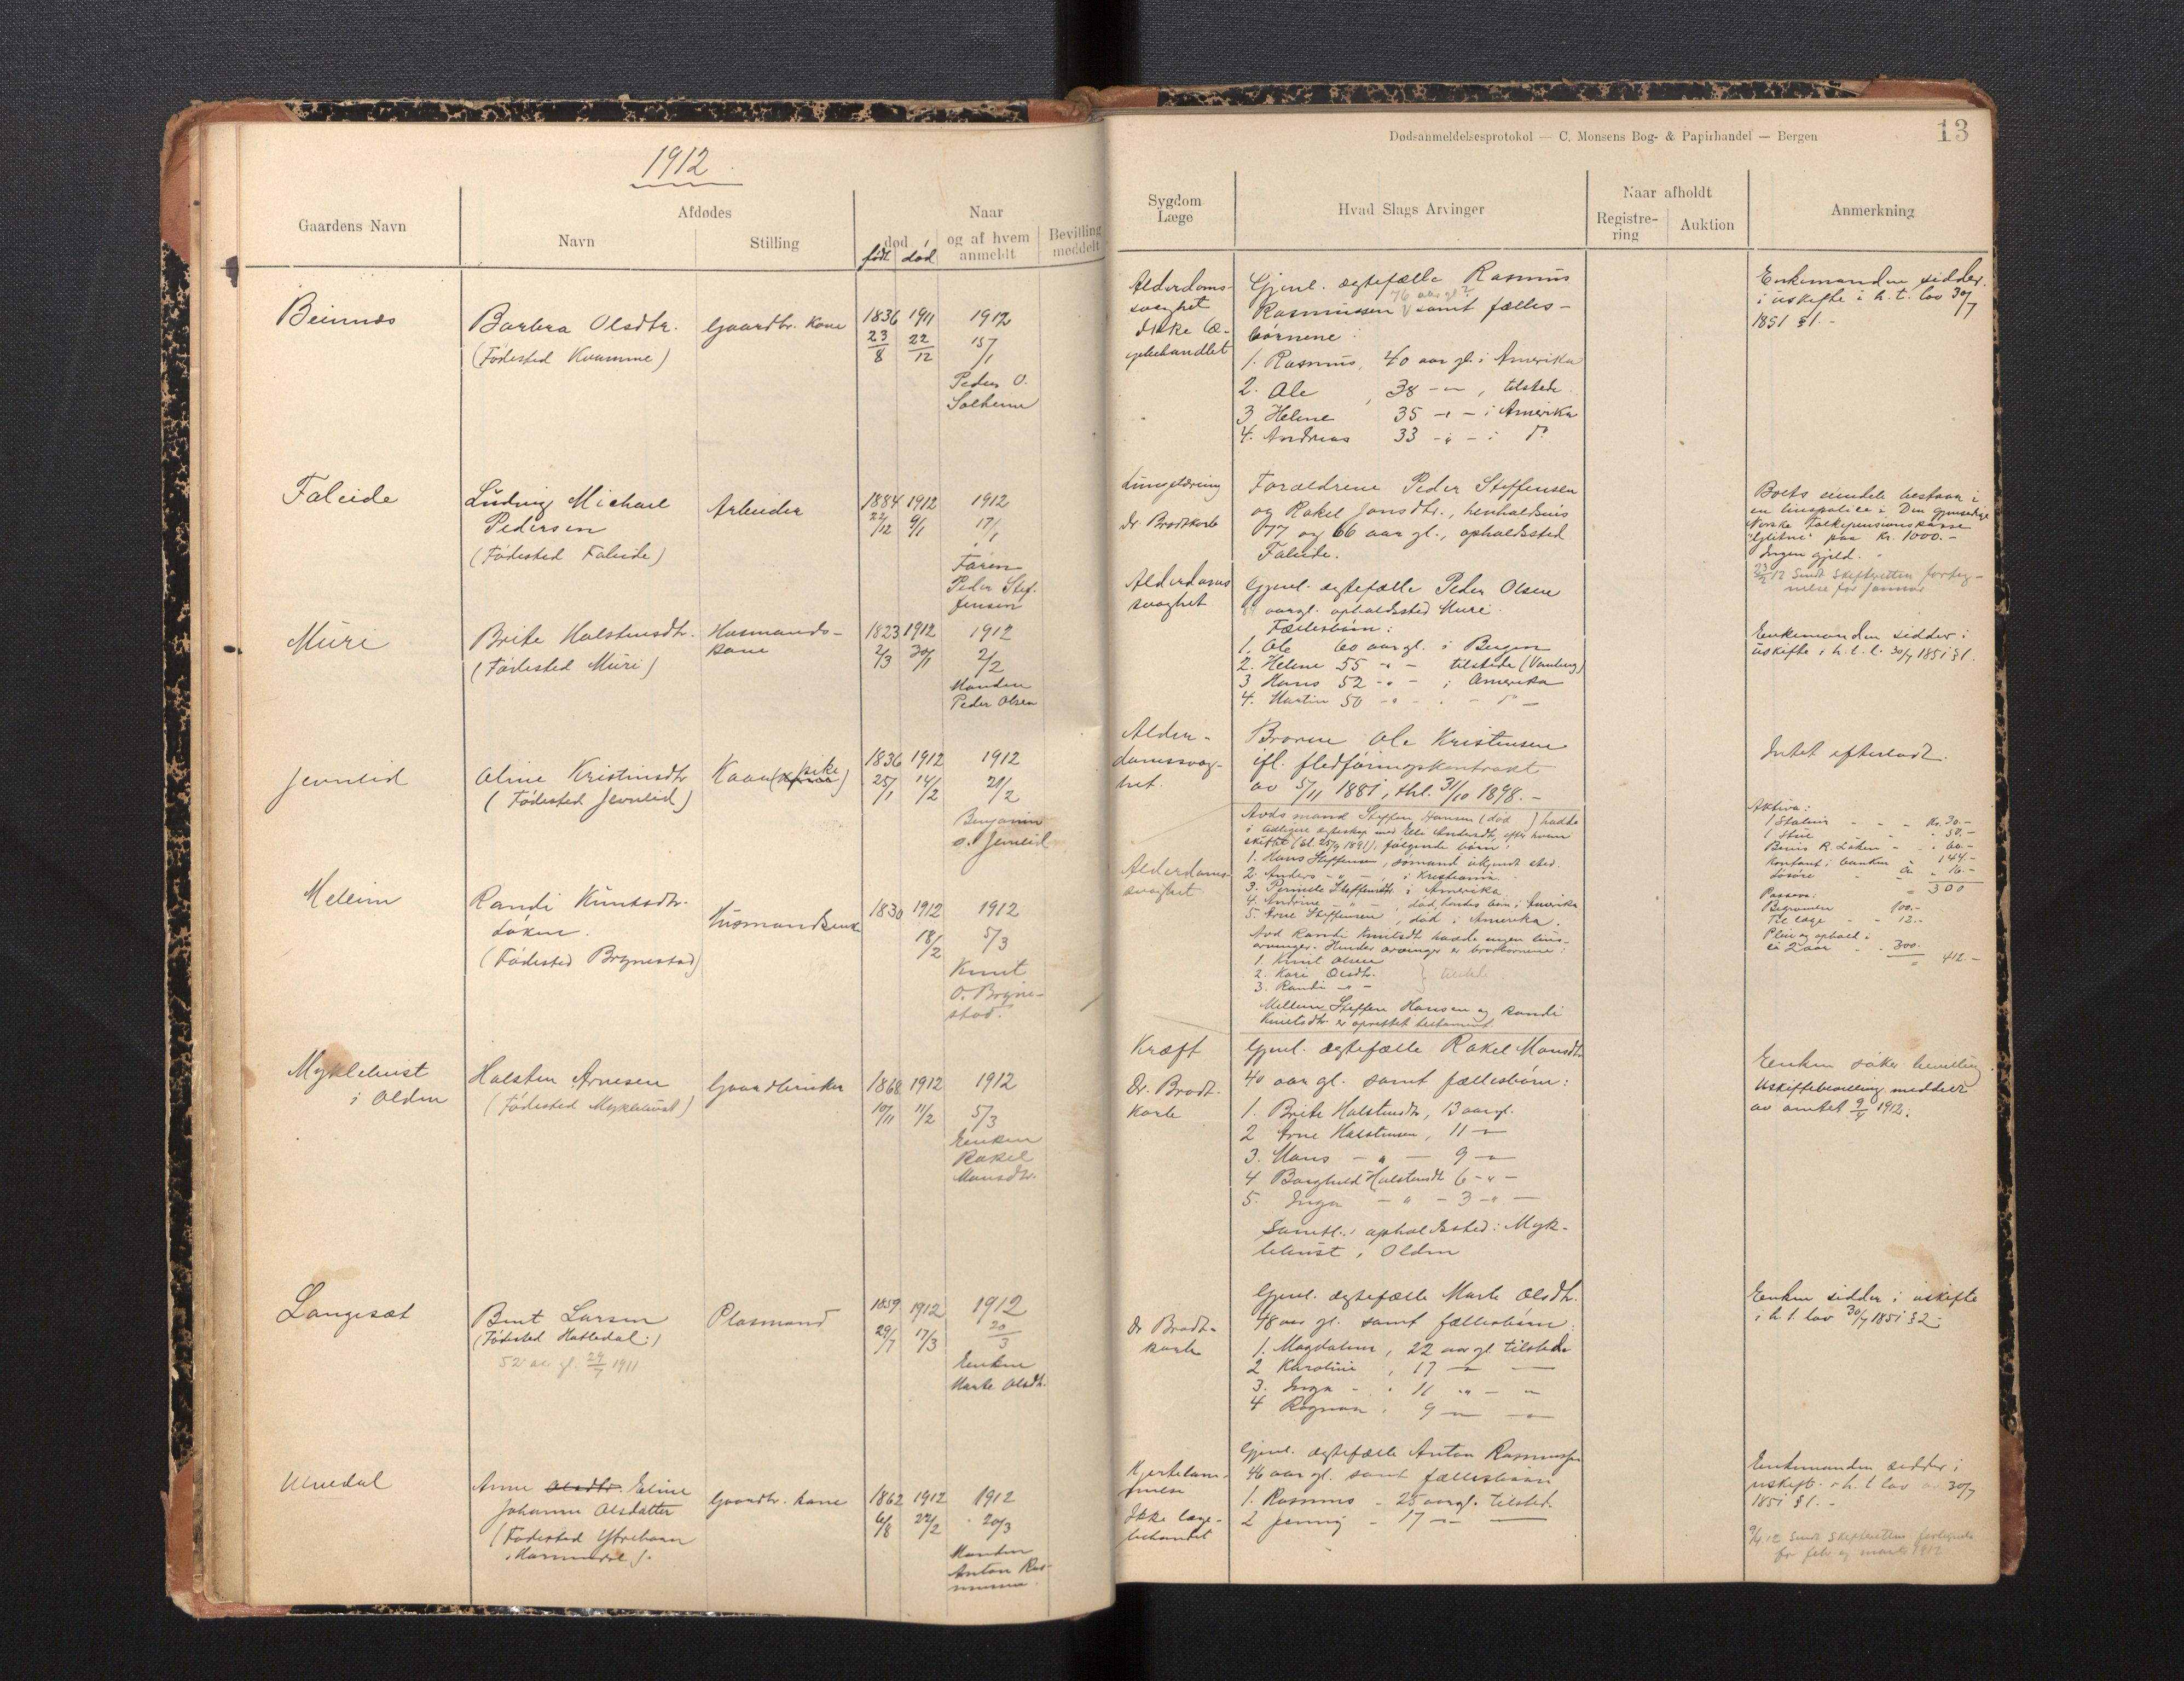 1912.
Gaardens Navn
Afdødes
Navn
Stilling
død
født
død
Naar
og af hvem
anmeldt
Bevilling
meddelt
Beinnes
Barbra Olsdtr.
(Fødested Kvamme)
Gaardbr. kone
1836 1911 1912
23/8 22/12 15/1
Peder O.
Solheim
Faleide
Ludvig Michael
Pedersen
(Fødested Faleide)
Arbeider
1884 1912 1912
22/12 9/1 17/1
Faren
Peder Stef-
fensen
Muri
Brite Halstensdtr.
(Fødested Muri)
Husmands-
kone
1823 1912 1912
2/3 30/1 2/2
Manden
Peder Olsen
Jevneid
Oline Kristensdtr
(Fødested Jevneid)
pike
1836 1912 1912
25/1 14/2 21/2
Benjamin
O. Jevneid
Meleim
Randi Knutsdtr.
Løken.
(Fødested Brynestad)
Husmandsenke
1830 1912 1912
18/2 5/3
Knut
O. Bryne-
stad.
Myklebust
i Olden
Halsten Arnesen
(Fødested Myklebust)
Gaardbruker
1868 1912 1912
10/11 11/2 5/3
Enken
Rakel
Monsdtr.
Langesæt
Bent Larsen
(Fødested Hatledal)
52 aar gl. 29/7 1911
Plasmand
1859 1912 1912
29/7 17/3 20/3
Enken
Marte Olsdtr.
Ulvedal
Anne Olsdtr. Eline
Johanne Olsdatter
(Fødested Ytrehaan
Gaardbr. kone
1862 1912 1912
6/8 22/2 20/3
Manden
Anton Ras-
mussen.
Dødsanmeldelsesprotokol — C. Monsens Bog- & Papirhandel — Bergen
13
Sygdom
Læge
Hvad Slags Arvinger
Naar afholdt
Registre-
ring
Auktion
Anmerkning
Alderdoms-
svaghet
Ikke læ-
gebehandlet
Gjenl. ægtefælle Rasmus
76 aar gl?
Rasmussen samt fælles-
børnene:
1. Rasmus, 40 aar gl. i Amerika
2. Ole, 38 -"-, tilstede.
3 Helene 35 -"- i Amerika
4. Andreas 33 -"- i do
Enkemanden sidder
i uskifte i h. t. lov 30/7
1851 § 1.-
Lungetæring
Dr. Brodtkorb
Forældrene Peder Steffensen
og Rakel Jonsdtr., henholdsvis
77 og 66 aar gl., opholdssted
Faleide.
Boets eiendele bestaar i
en livspolice i Den gjensidige
Norske Folkepensionskasse
"Glitne" paa kr. 1000.-
Ingen gjeld.
23/2 12 Sendt Skifteretten forteg-
nelse for januar
Alderdoms
svaghet
Gjenl. ægtefælle Peder Olsen
aargl. opholdssted Muri.
Fællesbørn:
1. Ole 60 aar gl. i Bergen
2. Helene 55 -"- tilstede
3 Hans 52 -"- i Amerika
4. Martin 50 -"- - do -
Enkemanden sidder i
uskifte i h. t. l. 30/7 1851 § 1.
Alder-
domssvag-
het.
Broren Ole Kristensen
ifl. fledføringskontrakt
av 5/11 1881, thl. 31/10 1898.-
Intet efterladt.
Alderdoms-
svaghet.
Avds mand Steffen Hansen (død) hadde
i tidligere egteskap med Elli Andersdtr, efter hvem
skiftet (sl. 25/9 1891), følgende børn:
1. Hans Steffensen, sømand ukjendt sted.
2. Anders -"-, i Kristiania
3. Pernille Steffensdtr. i Amerika
4. Andrine -"-, død, hendes børn i Amerika
5. Arne Steffensen, død i Amerika.
Avd Randi Knutsdtr hadde ingen livs-
arvinger. Hendes arvinger er brorbørnene:
1. Knut Olsen
2. Kari Olsdtr.
3. Randi -"-
tilstede
Mellem Steffen Hansen og Randi
Knutsdtr. er oprettet testament.
Aktiva:
1 Stue " 50.-
Kontant i banken " 144.-
Løsøre " 16.-
300
Passiva:
Begravelse 100.-
Til læge 12.-
Pleie og ophold i
2 aar 300.
412.-
Kræft
Dr. Brodt-
korb
Gjenl. ægtefælle Rakel Monsdtr
40 aar gl. samt fællesbørn:
1. Brite Halstensdtr, 13 aar gl.
2 Arne Halstensen, 11 -"-
3. Mons -"- 9 -"-
4 Borghild Halstensdtr 6 -"-
5. Inga -"- 3 -"-
Samtl.s opholdssted: Myk-
lebust i Olden
Enken søker bevilling.
Uskiftebevilling meddelt
av amtet 9/4 1912.
Dr Brodt-
korb
Gjenl. ægtefælle Marte Olsdtr.
48 aar gl. samt fællesbørn:
1. Magdalena, 22 aar gl. tilstede
2 Karoline, 17 -"-
3. Inga - 11 -"-
4 Ragnar, 9 -"-
Enken sidder i uskifte
i h. t. lov 30/7 1851 § 2.
Hjertelam-
melse
Ikke læge-
behandlet
Gjenl. ægtefælle Anton Rasmussen
46 aar gl. samt fællesbørn
1. Rasmus - 25 aar gl. tilsted.
2 Jenny - 17 -"-
Enkemanden sidder i
uskift. i h. t. lov av 30/7
1851 § 1.-
9/4 12 Sendt Skifteretten fortegnelse
for feb og marts 1912.